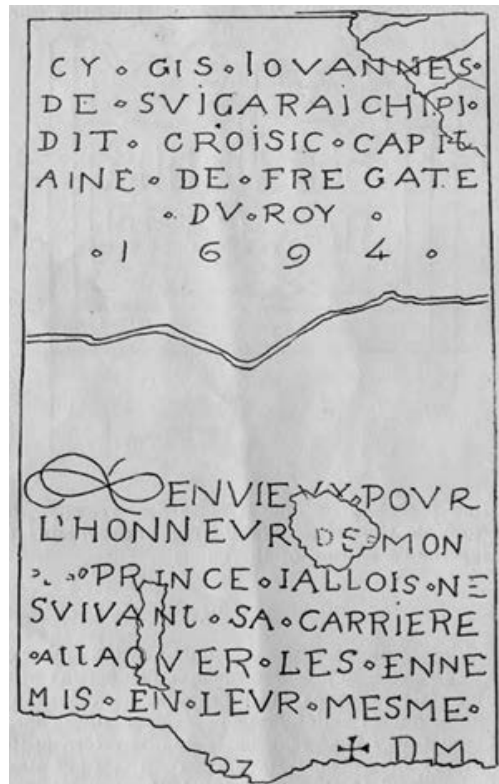 CY ∘ GIS ∘ IOVANNES ∘
DE ∘ SVIGARAICHIPI ∘
DIT ∘ CROISIC ∘ CAPIT
AINE ∘ DE ∘ FREGATE
∘ DV ∘ ROY ∘
∘ 1 6 9 4 ∘
ENVIEVX POVR
L'HONNEVR DE MON
PRINCE ∘ IALLOIS ∘ NE
SVIVANT ∘ SA ∘ CARRIERE
∘ ATTAQVER ∘ LES ∘ ENNE
MIS ∘ EN ∘ LEVR ∘ MESME ∘
✠ DM